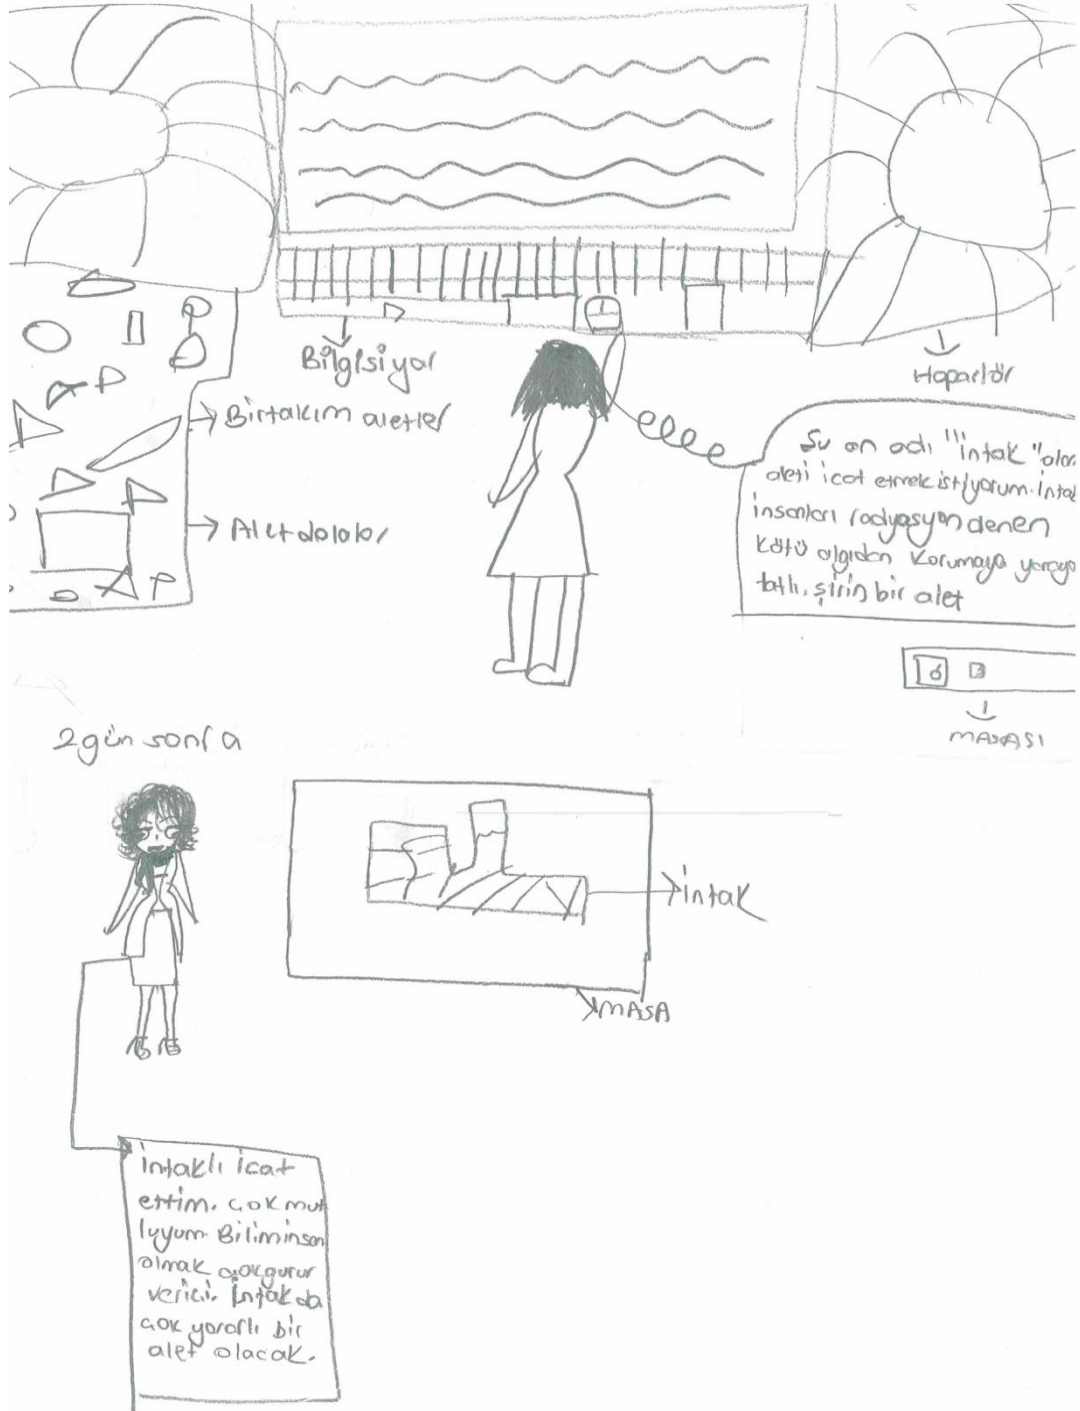 Bilgisiyar
Hoparlör
Birtakım aletler
Alet dolabı
Şu an adı "intak" olan
aleti icat etmek istiyorum. İntak
insanları radyasyon denen
kötü algıdan korumaya yaraya
tatlı, şirin bir alet
MASASI
2 gün sonra
İntak
MASA
İntaklı icat
ettim. çok mut
luyum. Biliminsan
olmak çok gurur
verici. İntak da
çok yararlı bir
alet olacak.